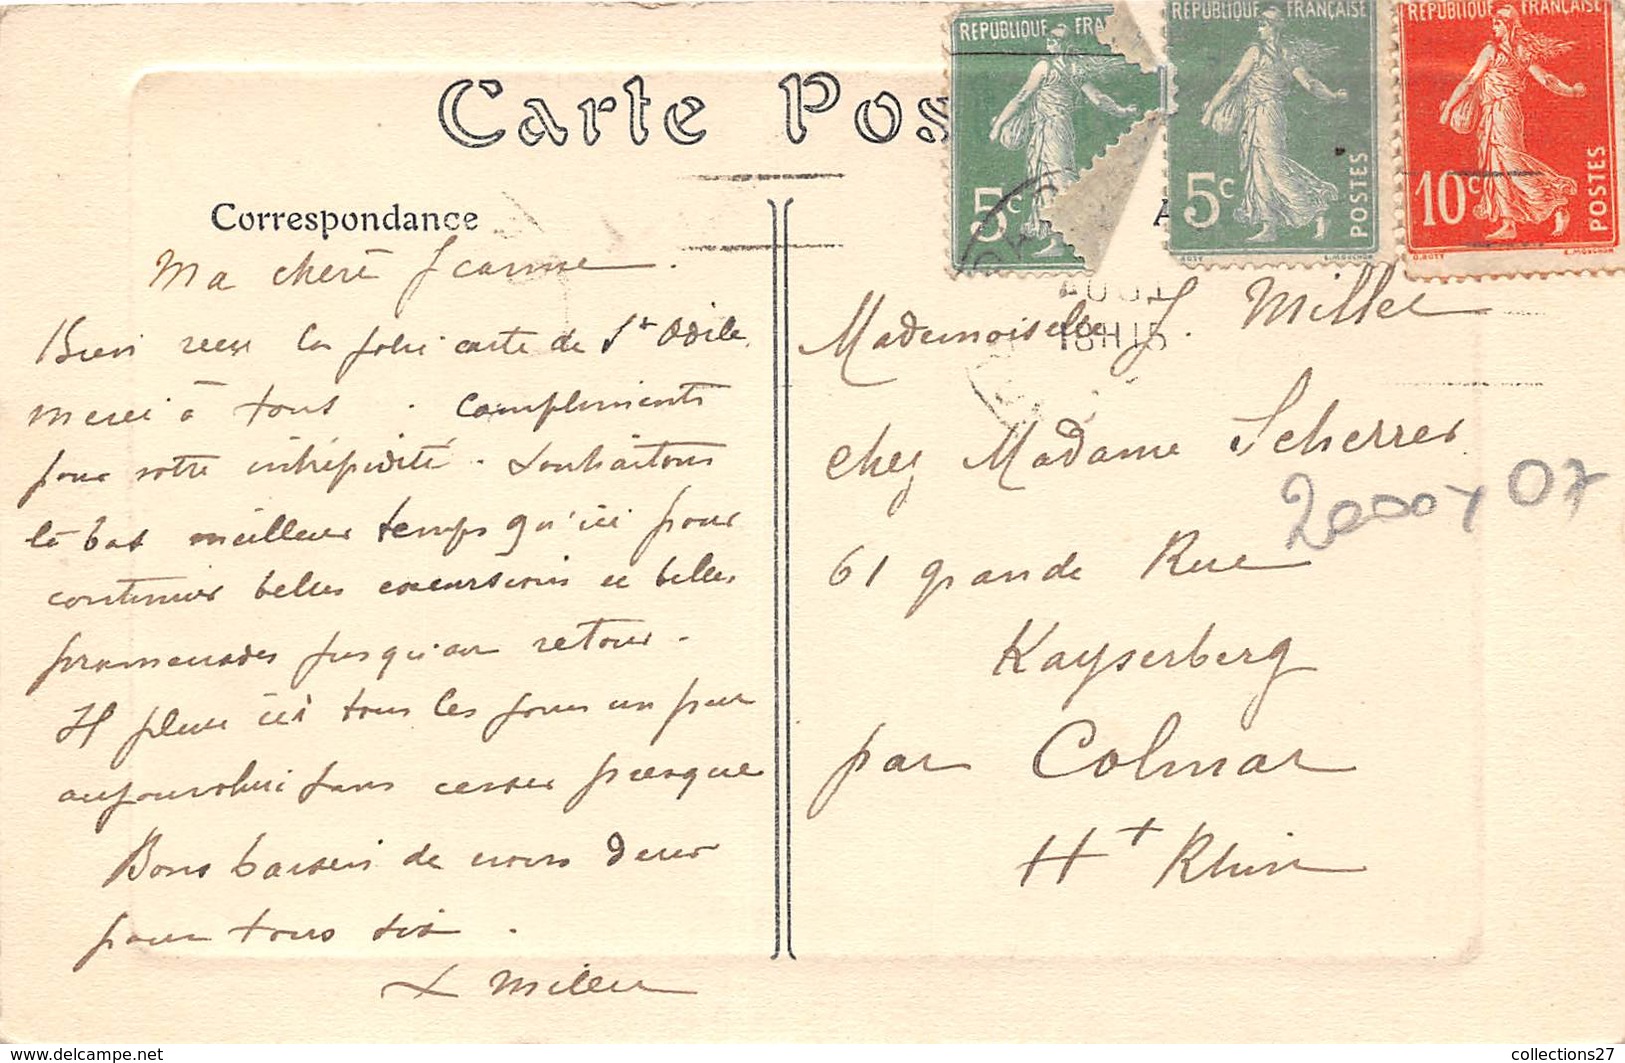 Carte Pos
REPUBLIQUE FRA
5c
REPUBLIQUE FRANÇAISE
5c
POSTES
REPUBLIQUE FRANÇAISE
10c
POSTES
18H15
Correspondance
Ma chere Jeanne.
Bien recu la jolie carte de St Odile,
merci à tous. Compliments
pour votre intrépidité. Souhaitons
là bas meilleur temps qu'ici pour
continuer belles excursions et belles
promenades jusqu'au retour.
Il pleut ici tous les jours un peu
aujourd'hui sans cesser presque
Bons baisers de nous deux
pour tous six.
L Miller
Mademoiselle J. Miller
chez Madame Scherrer
61 grande Rue
Kaysersberg
par Colmar
Ht Rhin
07
www.delcampe.net
collections27